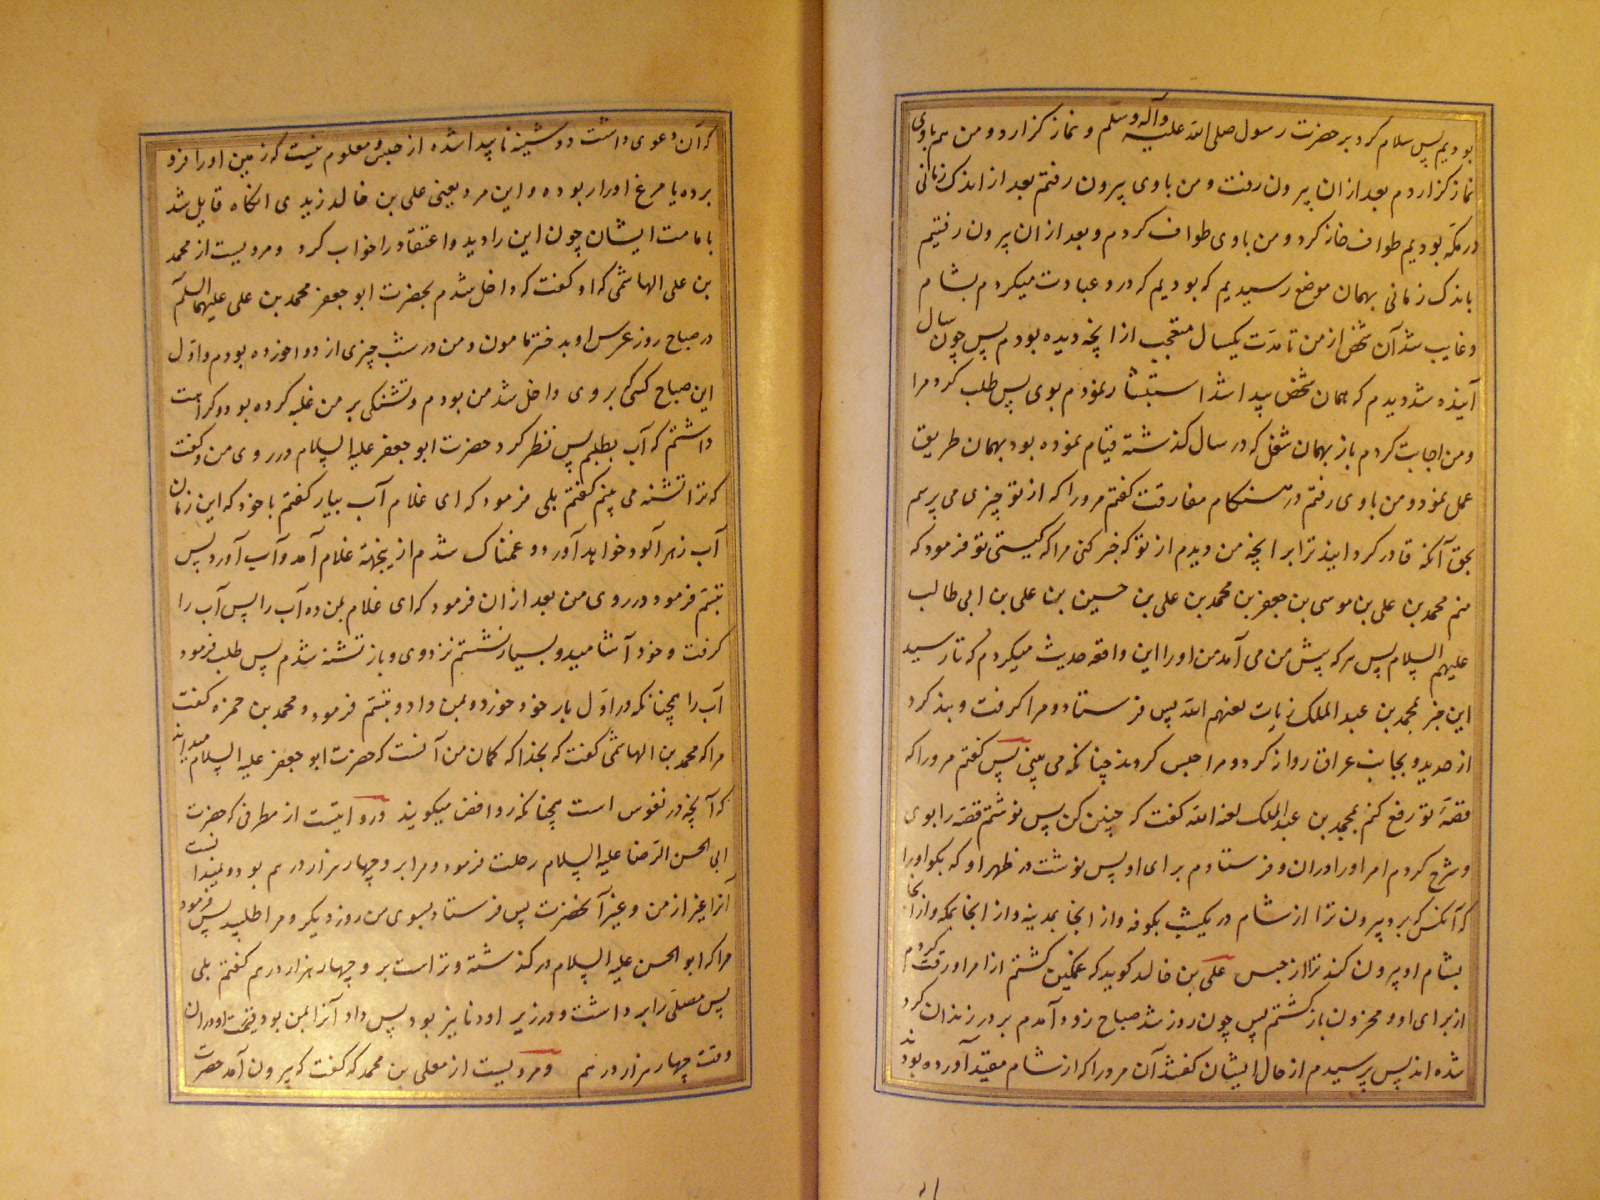 بودیم پس سلام کرد بر حضرت رسول صلی الله علیه وآله وسلم و نماز کزارد و من هم باوی
نماز کزاردم بعد از ان بیرون رفت و من باوی بیرون رفتم بعد از اندک زمانی
در مکه بودیم طواف خانه کرد و من باوی طواف کردم و بعد از ان بیرون رفتیم
باندک زمانی بهمان موضع رسیدیم که بودیم که درو عبادت میکردم بشام
و غایب شد آن شخص از من تا مدت یکسال متعجب از انچه دیده بودم پس چون سال
آینده شد دیدم که همان شخص پیدا شد استبشار نمودم بوی پس طلب کرد مرا
و من اجابت کردم باز بهمان شغل که در سال کذشته قیام نموده بود بهمان طریق
عمل نمود و من باوی رفتم در هنکام مفارقت کفتم مرورا که از تو چیزی می پرسم
بحق آنکه قادر کردانید ترا بر انچه من دیدم از تو که خبر کنی مرا که کیستی تو فرمود که
منم محمد بن علی بن موسی بن جعفر بن محمد بن علی بن حسین بن علی بن ابی طالب
علیهم السلام پس هر که پیش من می آمد من اورا این واقعه حدیث میکردم که تا رسید
این خبر بمحمد بن عبد الملک زیات لعنهم الله پس فرستاد و مرا کرفت و بند کرد
از حدید و بجانب عراق روانه کرد و مرا حبس کردند چنانکه می بینی پس کفتم مرورا که
قصهٔ تو رفع کنم بمحمد بن عبد الملک لعنه الله کفت که چنین کن پس نوشتم قصه را بوی
و شرح کردم امر اورا دران و فرستادم برای او پس نوشت در ظهر او که بکو اورا
که آنکس که برد بیرون ترا از شام در یکشب بکوفه و از انجا بمدینه و از انجا بمکه و از انجا
بشام او بیرون کند ترا از حبس علی بن خالد کوید که غمکین کشتم از امر او رقت کردم
از برای او و محزون باز کشتم پس چون روز شد صباح زود آمدم بر در زندان کرد
شده اند پس پرسیدم از حال ایشان کفتند آن مرورا که از شام مقید آورده بودند
که آن دعوی داشت دوشینه ناپیدا شده از حبس و معلوم نیست که زمین اورا فرو
برده یا مرغ اورا ربوده و این مرد یعنی علی بن خالد زیدی انکاه قایل شد
بامامت ایشان چون این را دید و اعتقاد را خواب کرد و مرویست از محمد
بن علی الهاشمی که او کفت که داخل شدم بحضرت ابو جعفر محمد بن علی علیهما السلم
در صباح روز عرس او بدختر مامون و من در شب چیزی از دوا خورده بودم و اول
این صباح کسی که بروی داخل شد من بودم و تشنکی بر من غلبه کرده بود و کراهت
داشتم که آب بطلبم پس نظر کرد حضرت ابو جعفر علیه السلام در روی من و کفت
که ترا تشنه می بینم کفتم بلی فرمود که ای غلام آب بیار کفتم با خود که این زمان
آب زهر آلود خواهد آورد و غمناک شدم از ینجهة غلام آمد و آب آورد پس
تبسم فرمود در روی من بعد از ان فرمود که ای غلام بمن ده آب را پس آب را
کرفت و خود آشامید و بسیار نشستم نزد وی و باز تشنه شدم پس طلب فرمود
آب را همچنانکه در اول بار خود خورد و بمن داد و تبسم فرمود و محمد بن حمزه کفت
مرا که محمد بن الهاشمی کفت که بخدا که کمان من آنست که حضرت ابو جعفر علیه السلام میداند
که آنچه در نفوس است همچنانکه روافض میکویند و روایتست از مطرفی که حضرت
ابی الحسن الرضا علیه السلام رحلت فرمود و مرا بر و چهار هزار درهم بود و نمیدانست
آنرا غیر از من و غیر آنحضرت پس فرستاد بسوی من روز دیکر و مرا طلبید پس فرمود
مرا که ابو الحسن علیه السلام در کذشته و تراست بر و چهار هزار درهم کفتم بلی
پس مصلی را برداشت و در زیر او دنانیر بود پس داد آنرا بمن بود قیمت او دران
وقت چهار هزار درهم و مرویست از معلی بن محمد که کفت که بیرون آمد حضرت